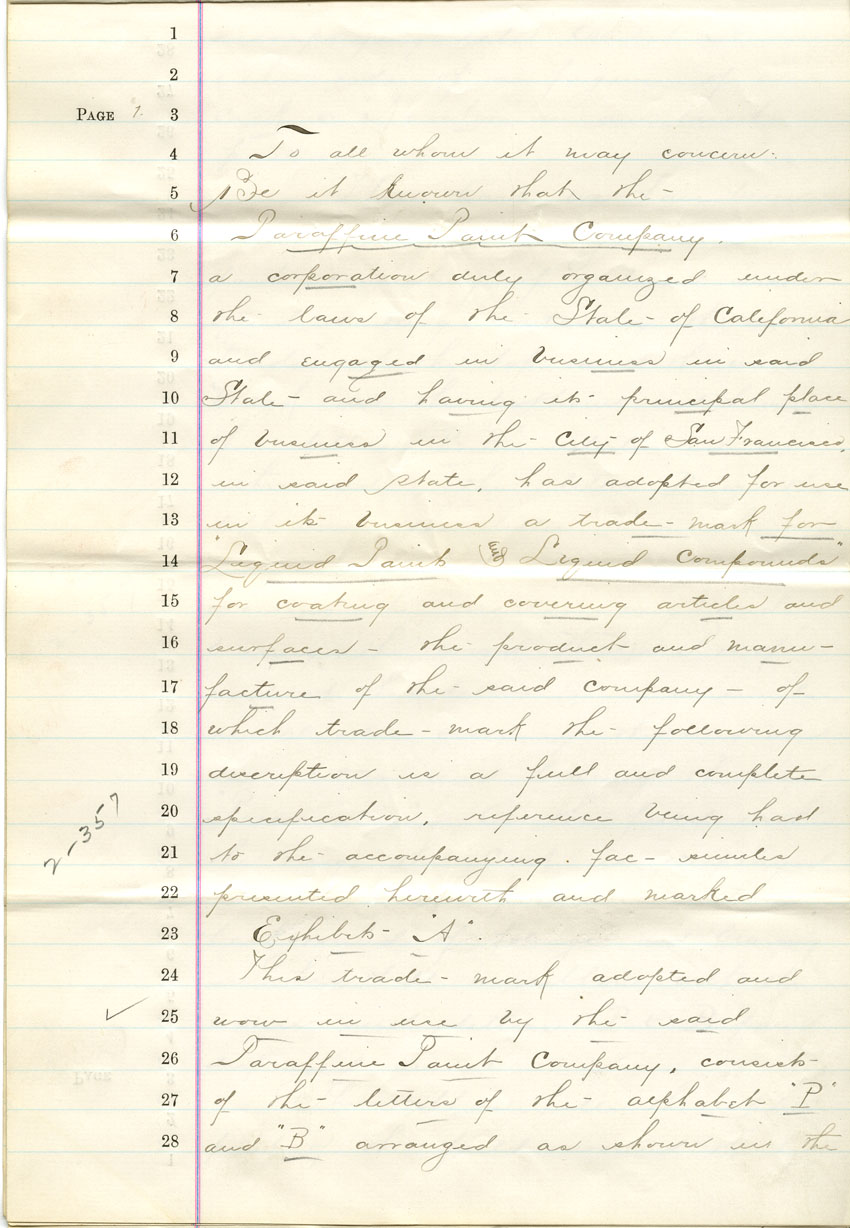 1
2
PAGE 1. 3
4 To all whom it may concern:
5 Be it known that the-
6 Paraffine Paint Company.
7 a corporation duly organized under
8 the laws of the State- of California
9 and engaged in business in said
10 State- and having its principal place
11 of business in the- City of San Francisco,
12 in said state, has adopted for use
13 in its business a trade- mark for
14 "Liquid Paint and Liquid Compounds"
15 for coating and covering articles and
16 surfaces - the product and manu-
17 facture of the- said company - of
18 which trade- mark the- following
19 discription is a full and complete
20 specification, reference being had
21 to the- accompanying. fac- similes
22 presented herewith and marked
23 Exhibits- "A".
24 This trade- mark adopted and
25 now in use by the- said
26 Paraffine Paint Company, consists-
27 of the- letters of the- alphabet "P"
28 and "B" arranged as shown in the
2-357